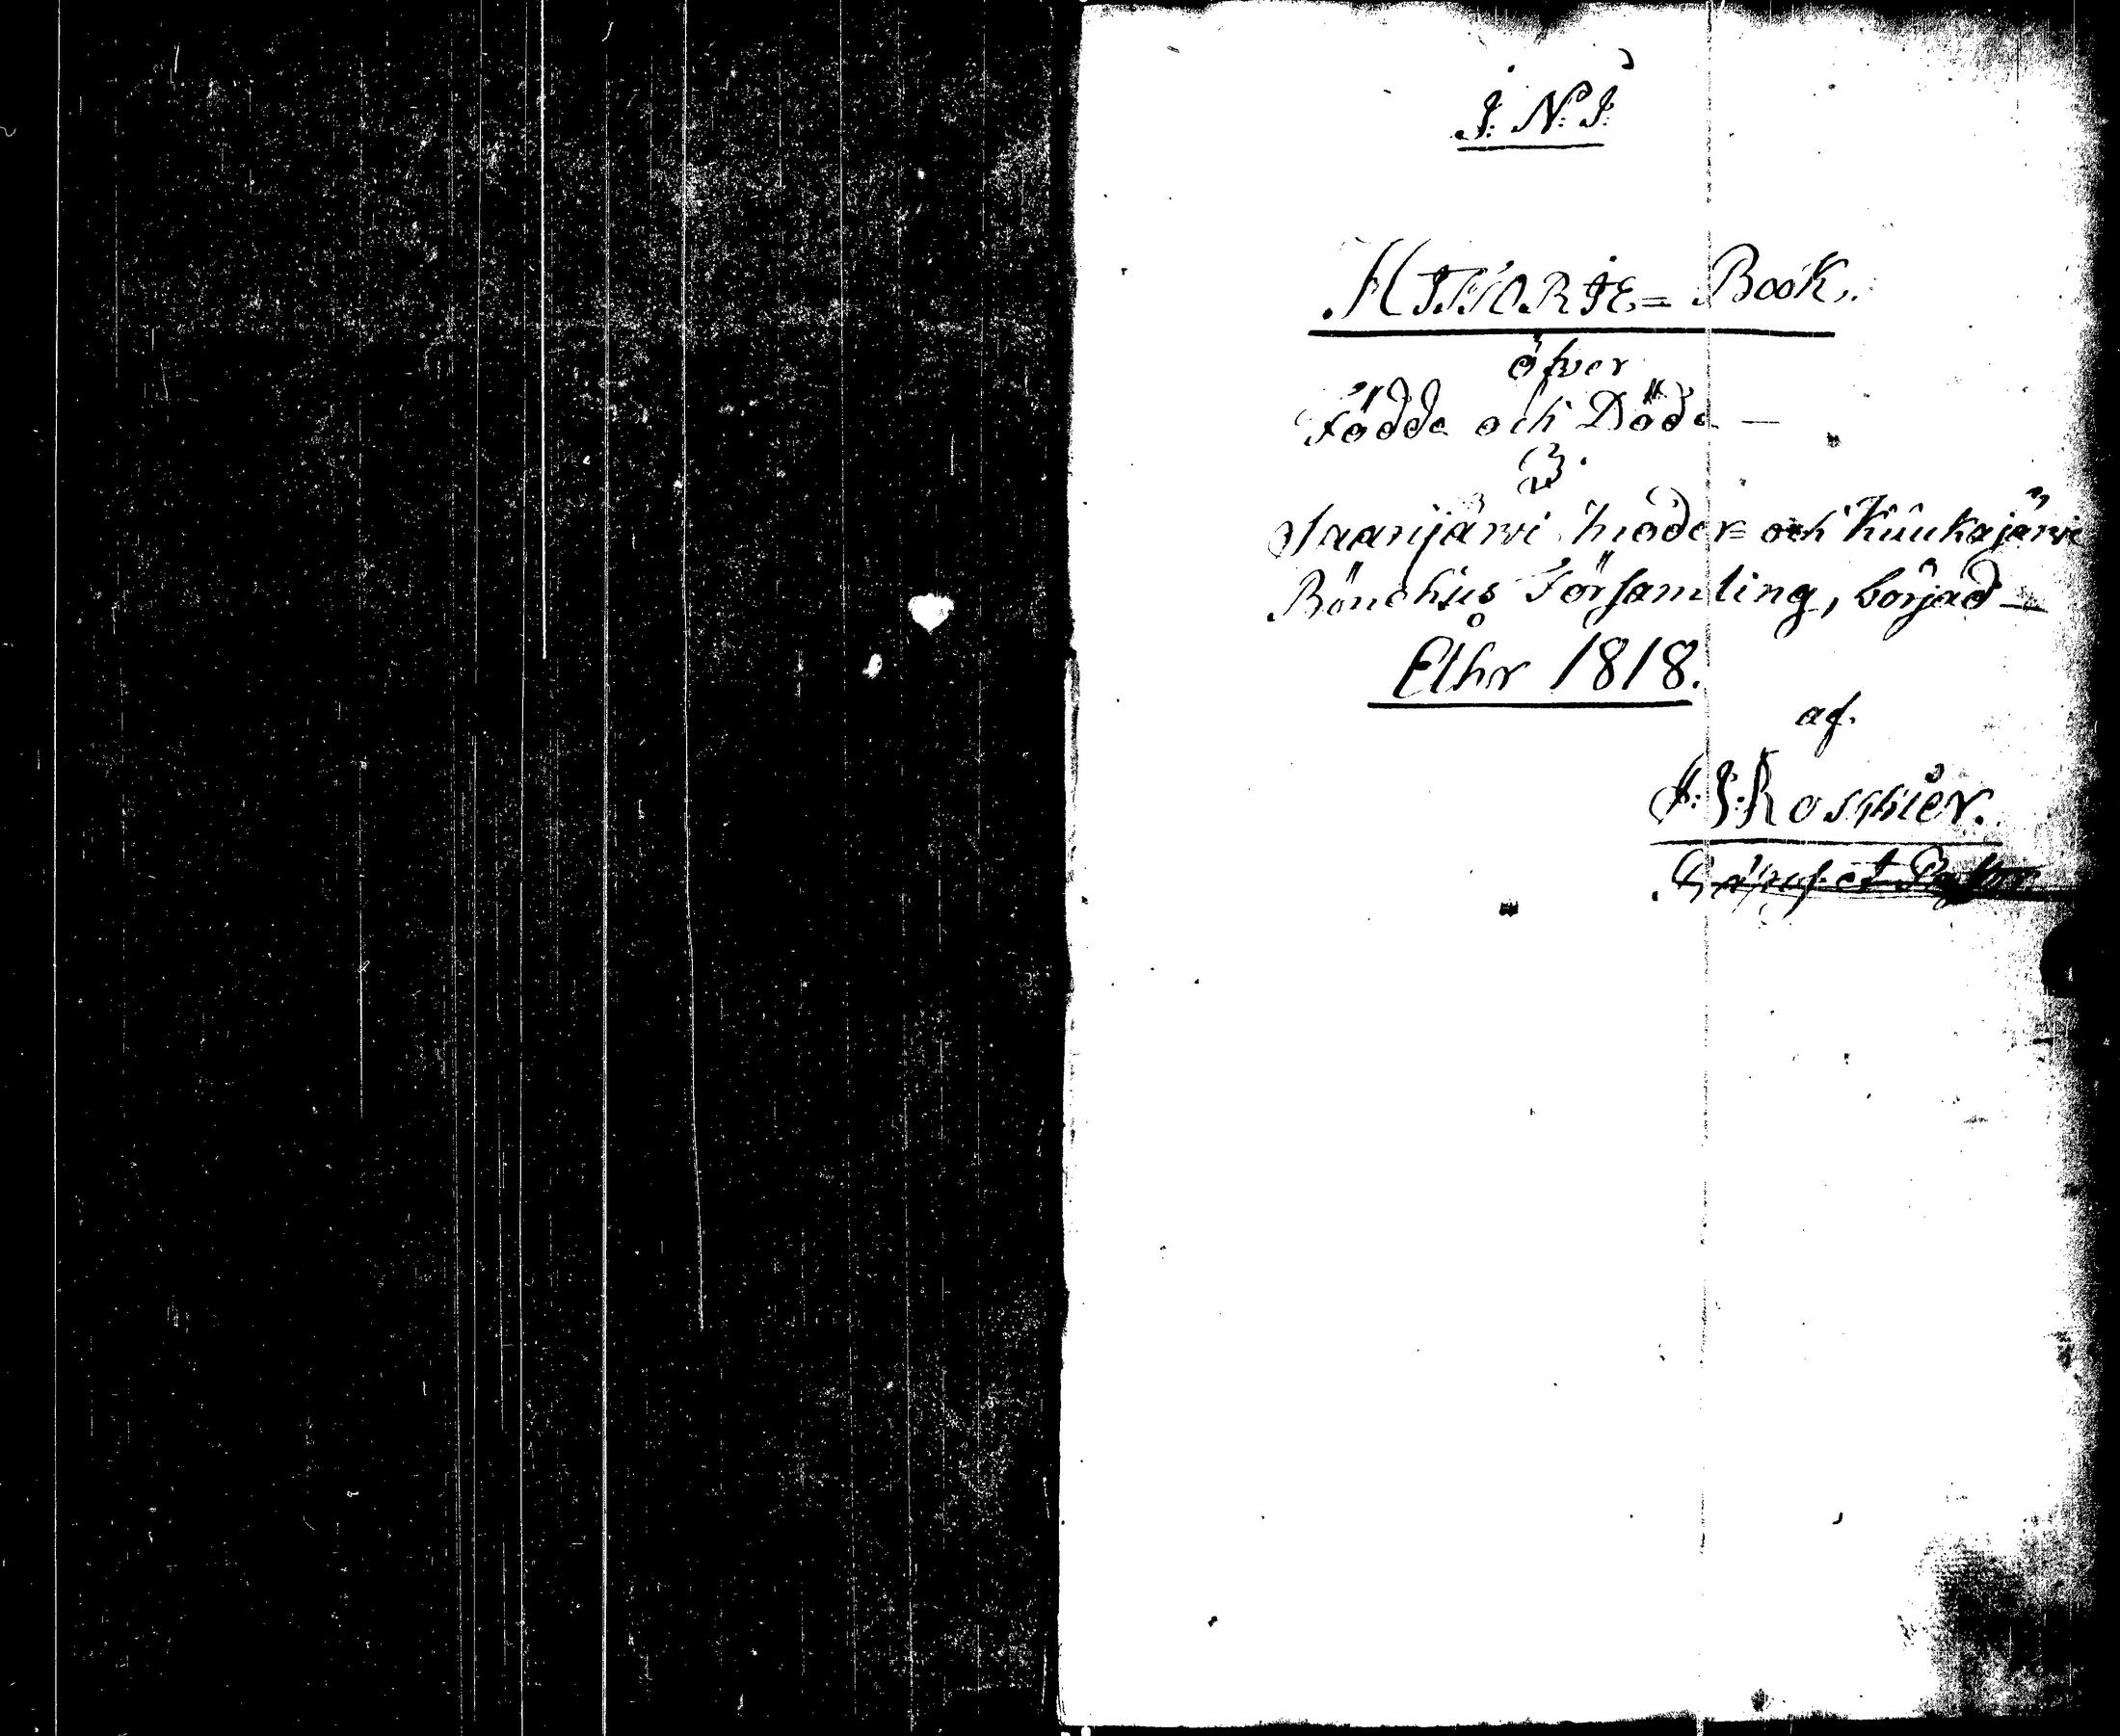 J: N: J:
HISTORIE= Book,
öfver
Födde och Döde —
I
Saarijärvi moder= och Kiukajärvi
Bönehus Församling, börjad —
Åhr 1818.
af.
J: Roschier.